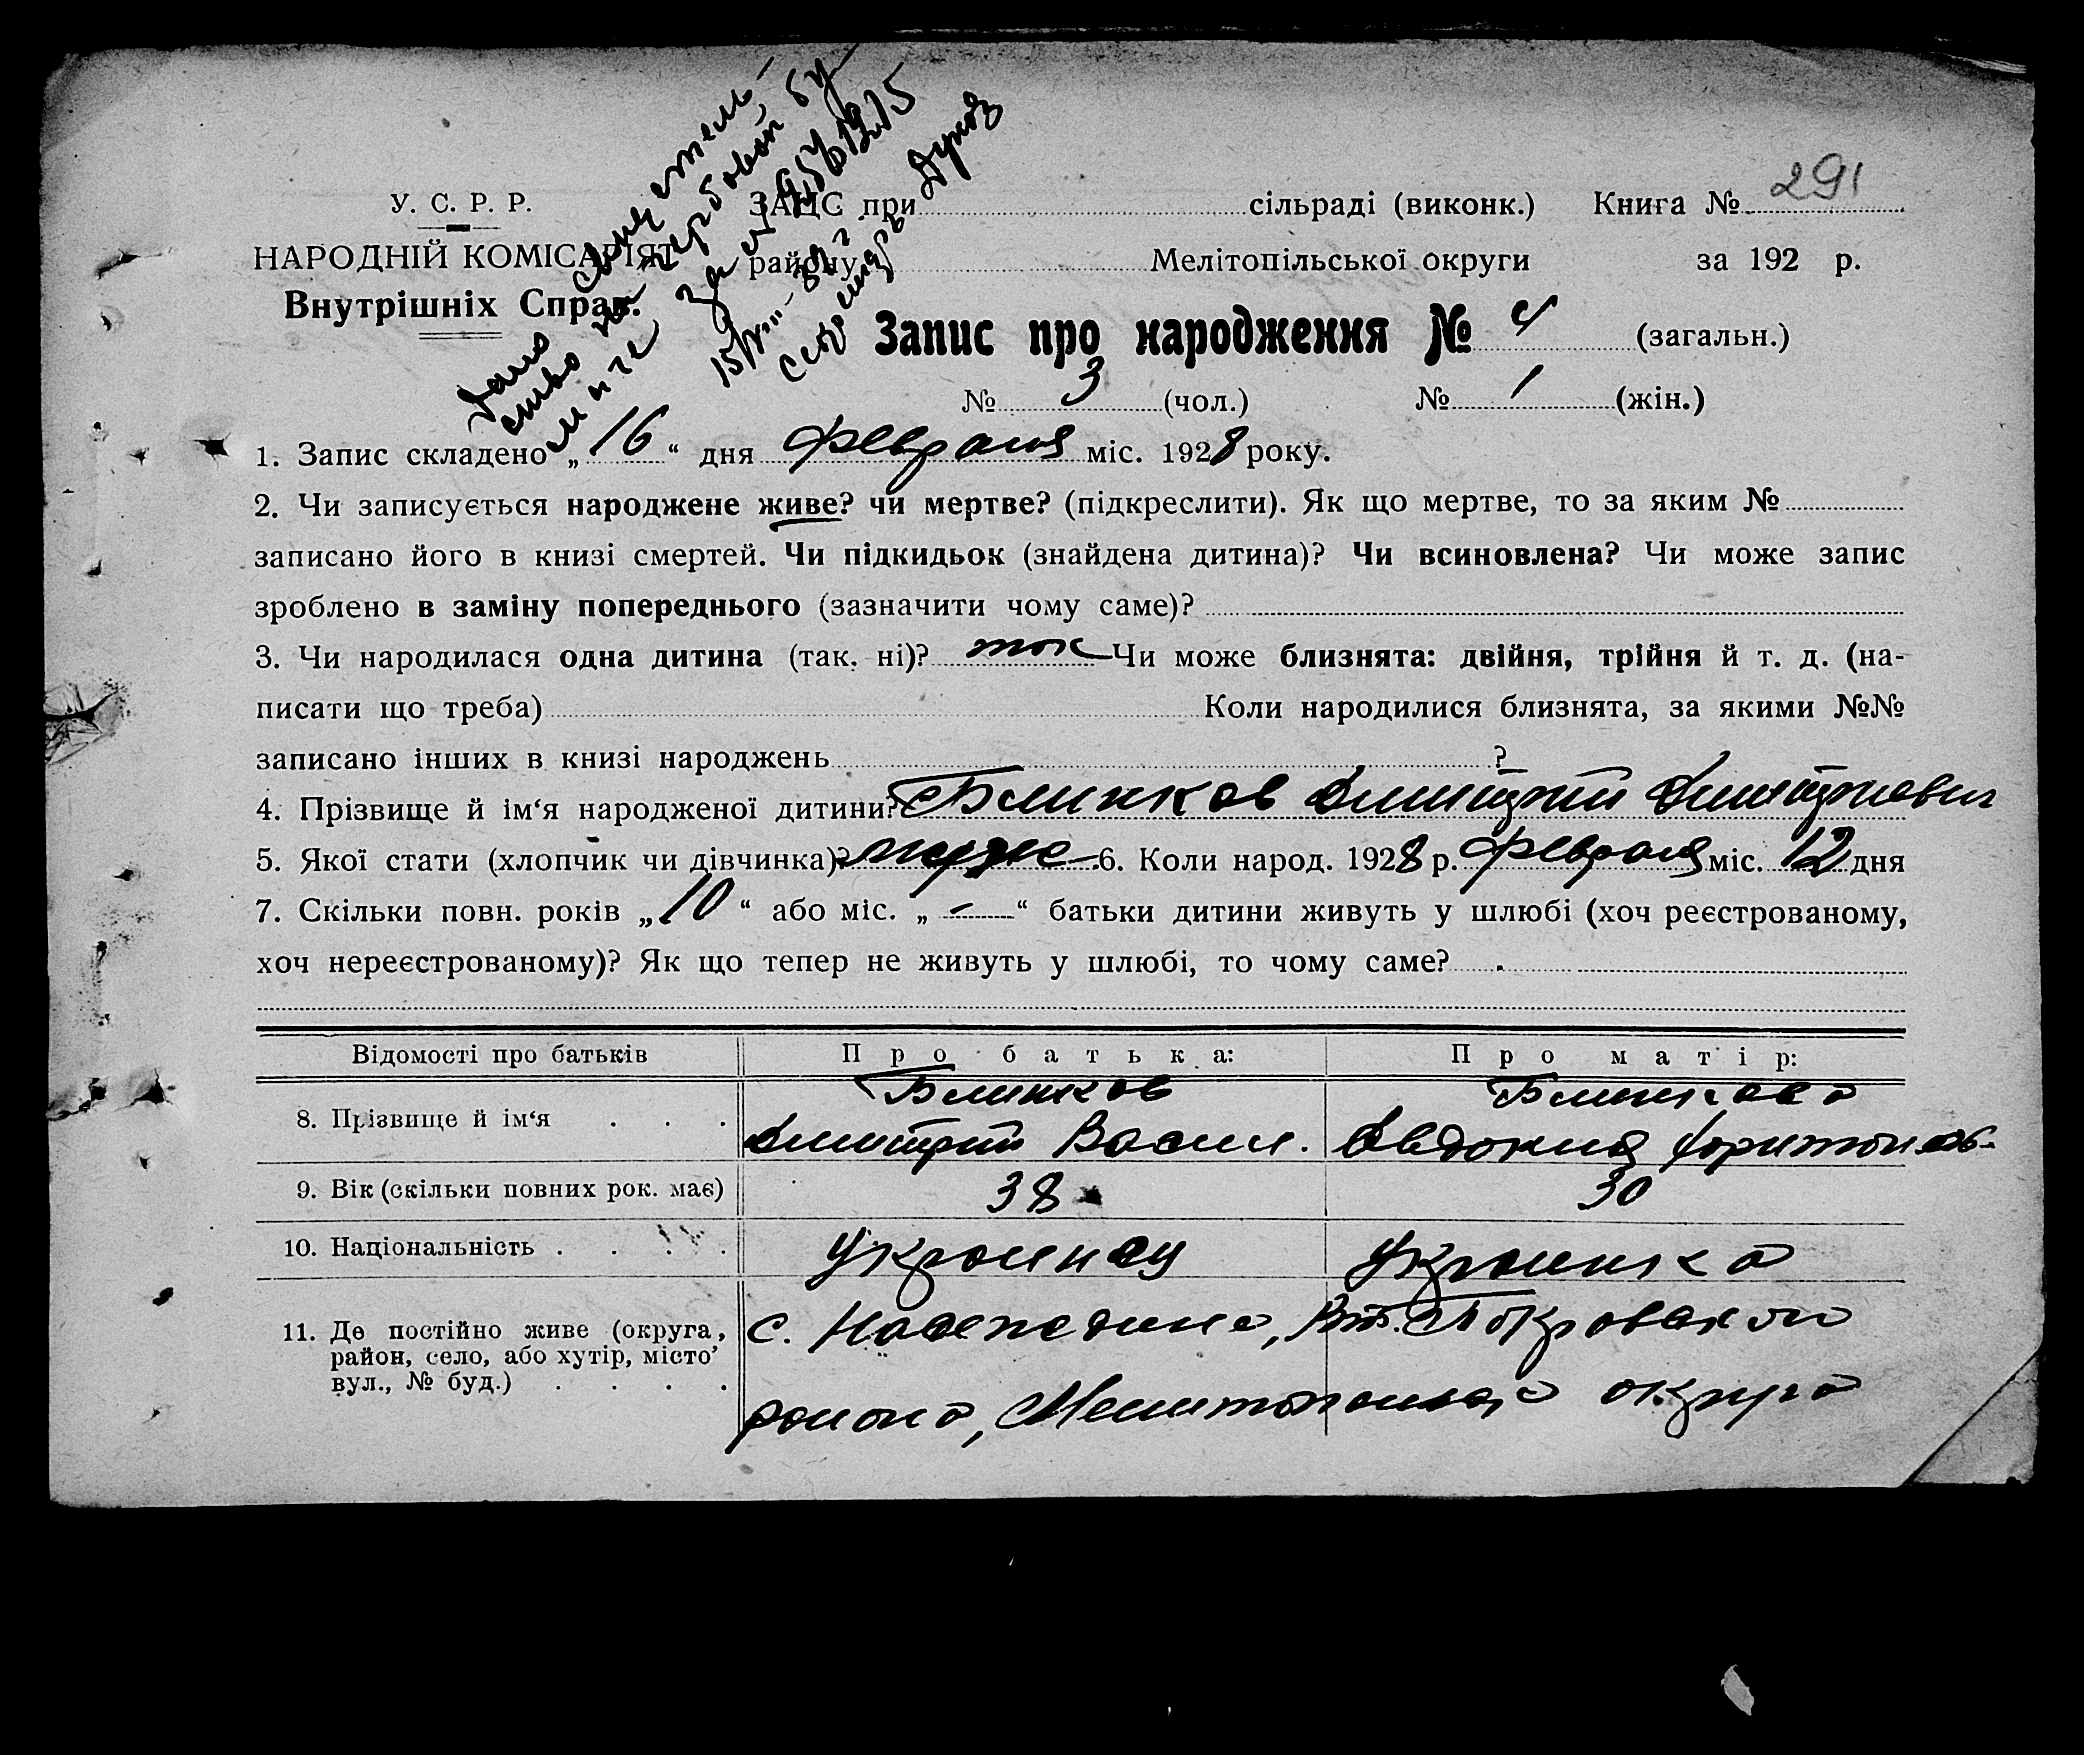 У. С. Р. Р.
НАРОДНІЙ КОМІСАРІЯТ
Внутрішніх Справ.
ЗАПС при сільраді (виконк.) Книга № 291
району Мелітопільської округи за 192 р.
Запис про народження № 4 (загальн.)
№ 3 (чол.) № 1 (жін.)
1. Запис складено „ 16 “ дня февраля міс. 1928 року.
2. Чи записується народжене живе? чи мертве? (підкреслити). Як що мертве, то за яким №
записано його в книзі смертей. Чи підкидьок (знайдена дитина)? Чи всиновлена? Чи може запис
зроблено в заміну попереднього (зазначити чому саме)?
3. Чи народилася одна дитина (так, ні)? так Чи може близнята: двійня, трійня й т. д. (на-
писати що треба) Коли народилися близнята, за якими №№
записано інших в книзі народжень ?
4. Прізвище й ім‘я народженої дитини? Блинков Дмитрий Дмитриевич
5. Якої стати (хлопчик чи дівчинка)? муже 6. Коли народ. 1928 р. февраля міс. 12 дня
7. Скільки повн. років „ 10 “ або міс. „ - “ батьки дитини живуть у шлюбі (хоч реєстрованому,
хоч нереєстрованому)? Як що тепер не живуть у шлюбі, то чому саме?
Відомості про батьків Про батька: Про матір:
8. Прізвище й ім‘я Блинков Блинкова
Дмитрий Васил. Евдокия Харитонов.
9. Вік (скільки повних рок. має) 38 30
10. Національність Украинец Украинка
11. Де постійно живе (округа, с. Надеждино, Вт. Покровского
район, село, або хутір, місто
вул., № буд.) района, Мелитопольс округа